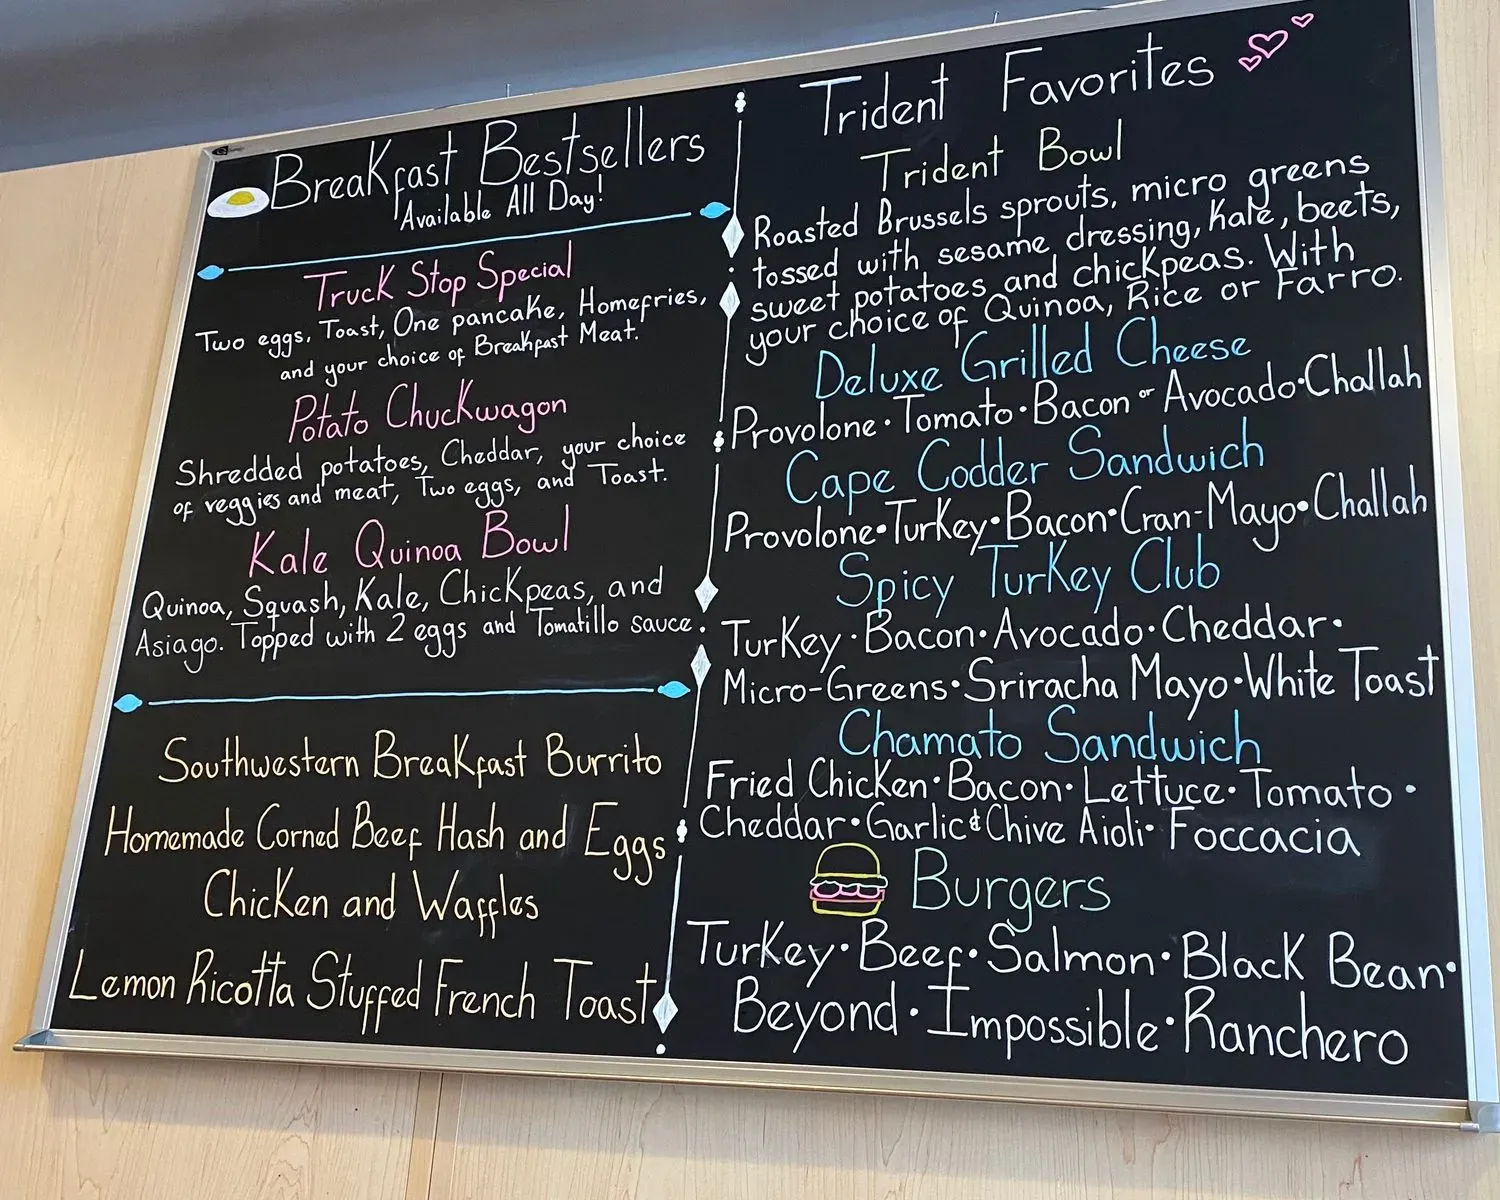 Breakfast Bestsellers
Available All Day!
Truck Stop Special
Two eggs, Toast, One pancake, Homefries,
and your choice of Breakfast Meat.
Potato Chuckwagon
Shredded potatoes, Cheddar, your choice
of veggies and meat, Two eggs, and Toast.
Kale Quinoa Bowl
Quinoa, Squash, Kale, Chickpeas, and
Asiago. Topped with 2 eggs and Tomatillo sauce.
Southwestern Breakfast Burrito
Homemade Corned Beef Hash and Eggs
Chicken and Waffles
Lemon Ricotta Stuffed French Toast
Trident Favorites
Trident Bowl
Roasted Brussels sprouts, micro greens
tossed with sesame dressing, Kale, beets,
sweet potatoes and chickpeas. With
your choice of Quinoa, Rice or Farro.
Deluxe Grilled Cheese
Provolone • Tomato • Bacon or Avocado • Challah
Cape Codder Sandwich
Provolone • Turkey • Bacon • Cran-Mayo • Challah
Spicy Turkey Club
Turkey • Bacon • Avocado • Cheddar •
Micro-Greens • Sriracha Mayo • White Toast
Chamato Sandwich
Fried Chicken • Bacon • Lettuce • Tomato •
Cheddar • Garlic & Chive Aioli • Foccacia
Burgers
Turkey • Beef • Salmon • Black Bean •
Beyond • Impossible • Ranchero